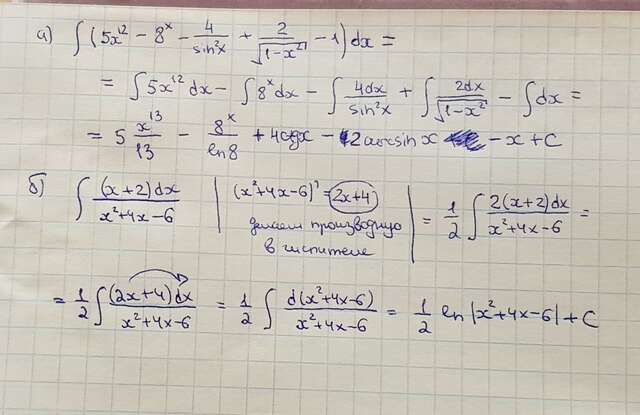 а) ∫(5x^12 - 8^x - 4/sin²x + 2/√(1-x²) - 1)dx =
= ∫5x^12 dx - ∫8^x dx - ∫4dx/sin²x + ∫2dx/√(1-x²) - ∫dx =
= 5 x^13/13 - 8^x/ln8 + 4ctgx - 2arcsin x - x + C
б) ∫(x+2)dx/(x²+4x-6) | (x²+4x-6)' = 2x+4 | = 1/2 ∫2(x+2)dx/(x²+4x-6) =
делаем производную
в числителе
= 1/2 ∫(2x+4)dx/(x²+4x-6) = 1/2 ∫d(x²+4x-6)/(x²+4x-6) = 1/2 ln|x²+4x-6| + C